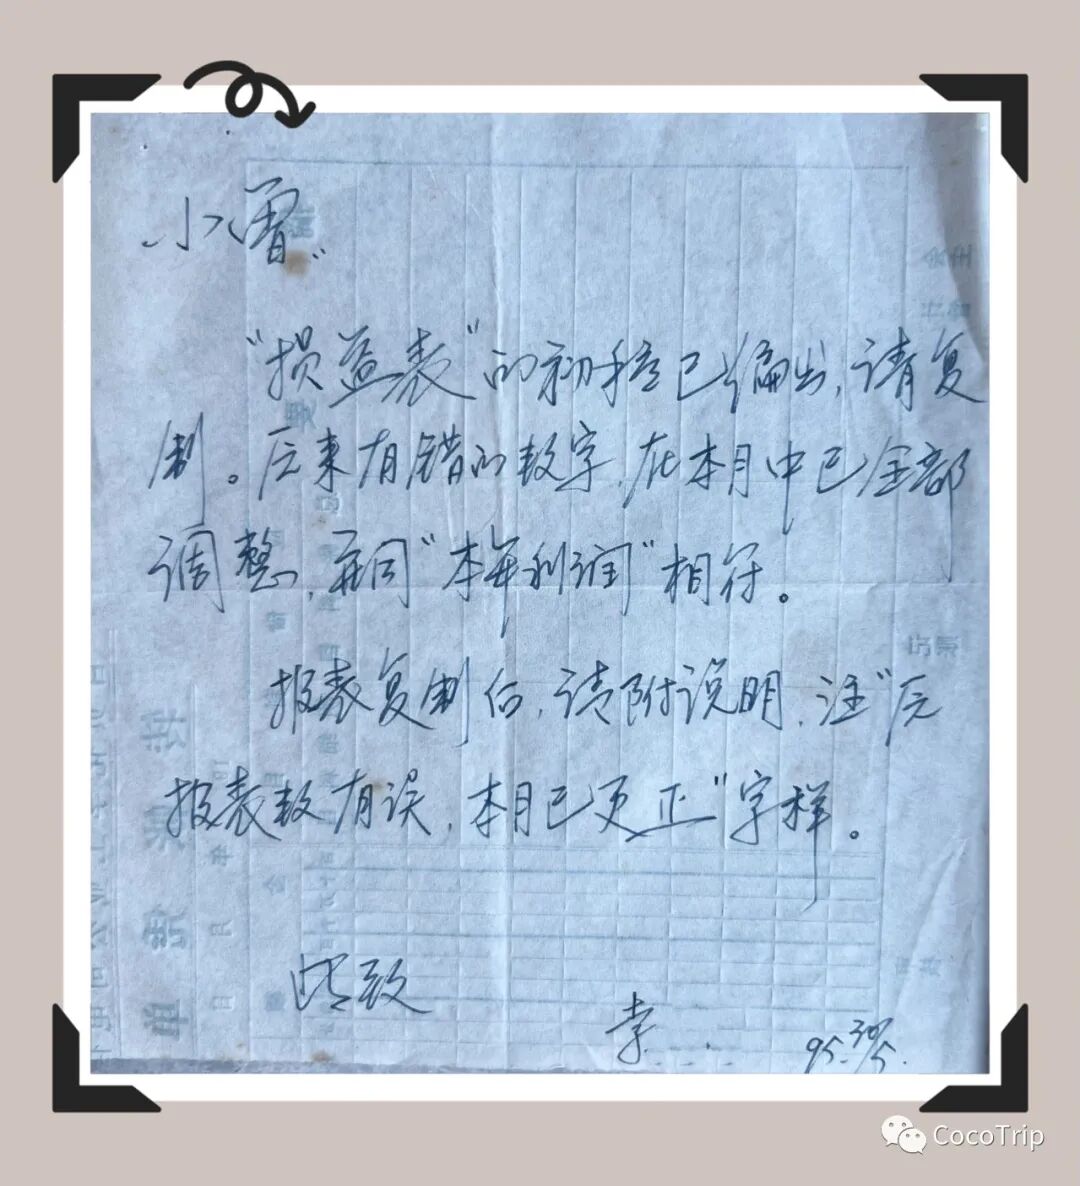 小雪：
"损益表"的初稿已编出，请复
制。原来有错的数字，在本月中已全部
调整，并同"本年利润"相符。
报表复制后，请附说明，注"原
报表数有误，本月已更正"字样。
此致
李
95.30/5.
CocoTrip